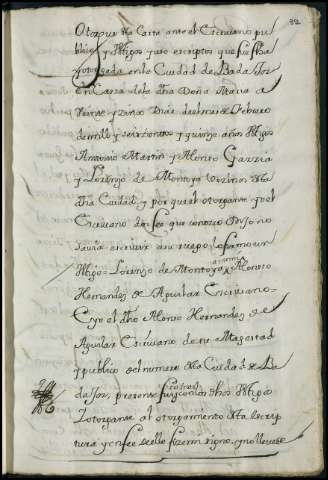 82
Otorgue esta Carta ante el Escrivano pu
blico y testigos yuso escriptos que fue fha
y otorgada en la Ciudad de Badajoz
en Casa de la dha Doña Maria a
Veinte y cinco dias del mes de Febrero
de mill y seiscientos y quinze años testigos
Antonio Martin y Alonso Garzia
y Lorenzo de Montoya vezinos desta
dha Ciudad y por que el otorgante que el
Escrivano doy fee que conozco dixo no
savia escrivir a su ruego lo firmo un
testigo = Lorenzo de Montoya ante mi Alonso
Hernandez de Aguilar Escrivano =
E yo el dho Alonso Hernandez de
Aguilar Escrivano de su Magestad
y publico del numero desta Ciudad de Ba
dajoz, presente fui con los dhos testigos
y otorgante al otorgamiento desta Escrip
tura y en fee dello fize mi signo, y no lleve